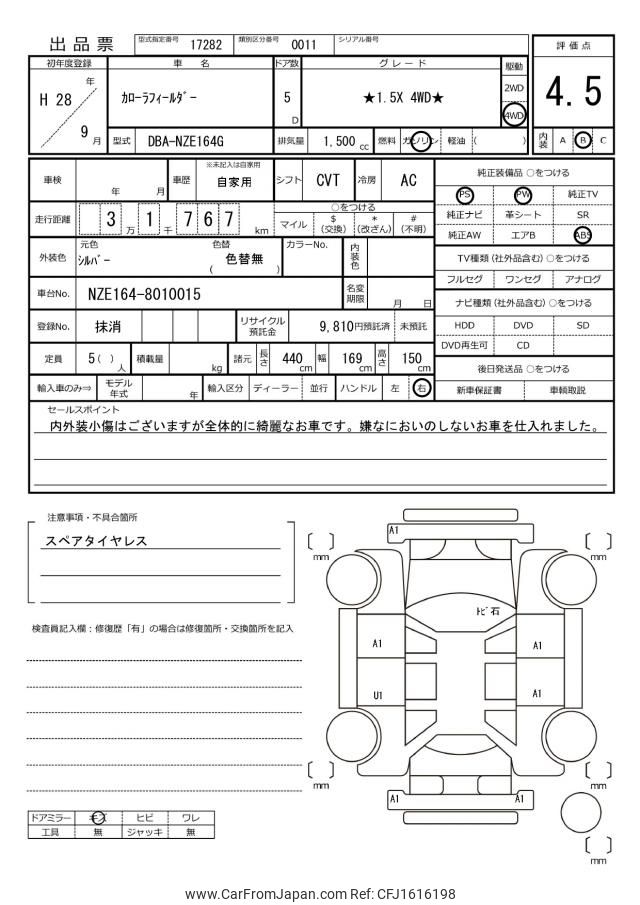 出品票
型式指定番号 17282 類別区分番号 0011 シリアル番号
評価点
4.5
内装 A B C
初年度登録 車 名 ドア数 グレード 駆動
H 28 年 9 月
ｶﾛｰﾗﾌｨｰﾙﾀﾞｰ
5 D
★1.5X 4WD★
2WD
4WD
型式 DBA-NZE164G 排気量 1,500 cc 燃料 ガソリン 軽油 ( )
車検 年 月 車歴 ※未記入は自家用 自家用 シフト CVT 冷房 AC
走行距離 3 万 1 千 7 6 7 km
○をつける
マイル $ (交換) * (改ざん) # (不明)
外装色 元色 ｼﾙﾊﾞｰ 色替 ( 色替無 ) カラーNo. 内装色
車台No. NZE164-8010015 名変期限 月 日
登録No. 抹消 リサイクル預託金 9,810円預託済 未預託
定員 5 ( ) 人 積載量 kg 諸元 長さ 440 cm 幅 169 cm 高さ 150 cm
輸入車のみ⇒ モデル年式 年 輸入区分 ディーラー 並行 ハンドル 左 右
純正装備品 ○をつける
PS PW 純正TV
純正ナビ 革シート SR
純正AW エアB ABS
TV種類 (社外品含む) ○をつける
フルセグ ワンセグ アナログ
ナビ種類 (社外品含む) ○をつける
HDD DVD SD
DVD再生可 CD
後日発送品 ○をつける
新車保証書 車輌取説
セールスポイント
内外装小傷はございますが全体的に綺麗なお車です。嫌なにおいのしないお車を仕入れました。
注意事項・不具合箇所
スペアタイヤレス
検査員記入欄：修復歴「有」の場合は修復箇所・交換箇所を記入
ドアミラー キズ ヒビ ワレ
工具 無 ジャッキ 無
A1
mm
mm
ﾄﾋﾞ石
A1
A1
U1
A1
mm
mm
A1
A1
mm
www.CarFromJapan.com Ref: CFJ1616198